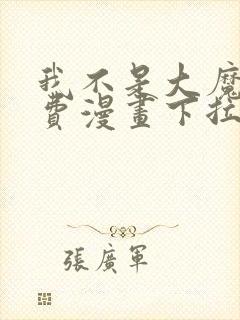 我不是大魔
費漫畫下拉
張廣軍